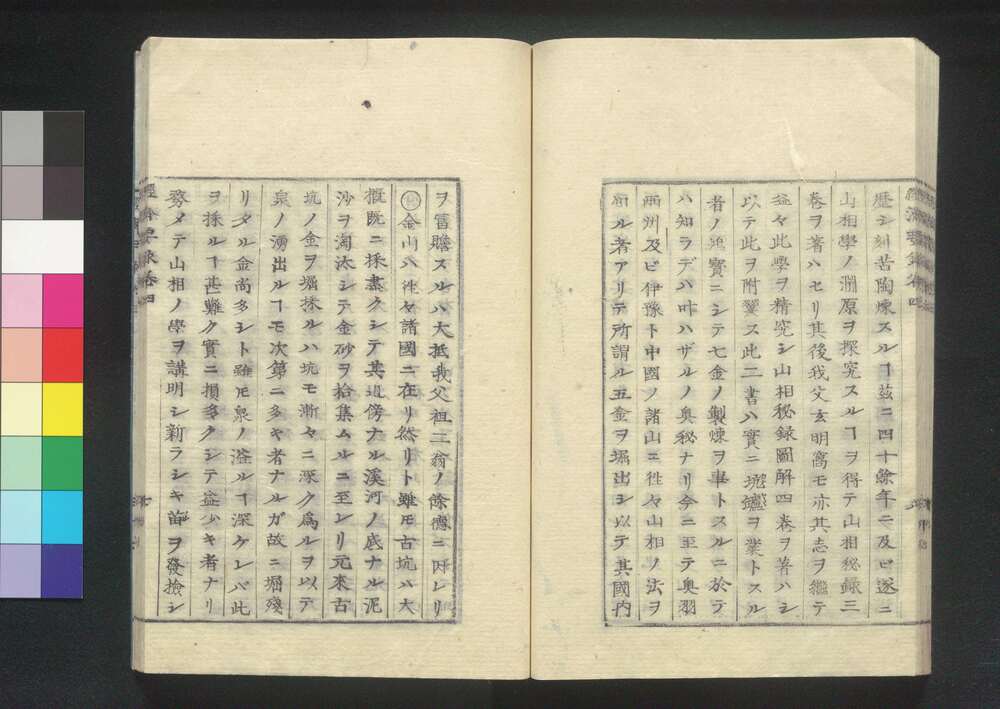 歴シ刻苦陶煉スルヿ茲ニ四十餘年ニ及ビ遂ニ
山相學ノ淵原ヲ探究スルヿヲ得テ山相秘録三
巻ヲ著ハセリ其後我父玄明窩モ亦其志ヲ繼テ
益々此學ヲ精究シ山相秘録圖解四巻ヲ著ハシ
以テ此ヲ附翼ス此二書ハ實ニ坑ヲ業トスル
者ノ鴻寶ニシテ七金ノ製煉ヲ事トスルニ於ラ
ハ知ラデハ叶ハザルノ奥秘ナリ今ニ至テ奥羽
兩州及ビ伊豫ト中國ノ諸山ニ徃々山相ノ法ヲ
ル者アリテ所謂ル五金ヲ堀出シ以テ其國内
ヲ富贍スルハ大抵我父祖三翁ノ餘德ニ因レリ
金山ハ徃々諸國ニ在リ然リト雖モ古坑ハ大
概既ニ採盡クシテ其近傍ナル溪河ノ底ナル泥
沙ヲ淘汰シテ金砂ヲ拾集ムルニ至レリ元來古
坑ノ金ヲ堀採ルハ坑モ漸々ニ深ク爲ルヲ以テ
泉ノ湧出ルヿモ次第ニ多キ者ナルガ故ニ堀殘
リタル金尚多シト雖モ泉ノ溢ルヿ深ケレバ此
ヲ採ルヿ甚難ク實ニ損多クシテ益少キ者ナリ
務メテ山相ノ學ヲ講明シ新ラシキ苗ヲ發撿シ